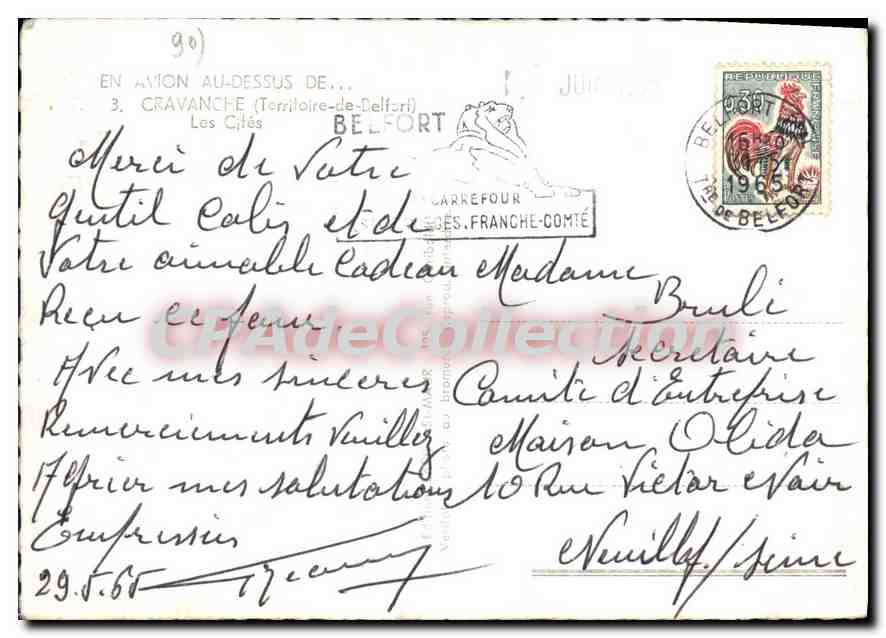 90)
EN AVION AU-DESSUS DE...
3. CRAVANCHE (Territoire-de-Belfort)
Les Cités
BELFORT
CARREFOUR
GES. FRANCHE-COMTÉ
REPUBLIQUE FRANÇAISE
0,30
BELFORT
1965
TRE DE BELFORT
Merci de Votre
Gentil Colis et de
Votre aimable Cadeau
Reçu ce jour.
Avec mes sinceres
Remerciements Veuillez
Agréer mes salutations
Empressées
29.5.65
Madame
Brulé
Secretaire
Comité d'Entreprise
Maison Olida
10 Rue Victor Noir
Neuilly/Seine
CPAdeCollection